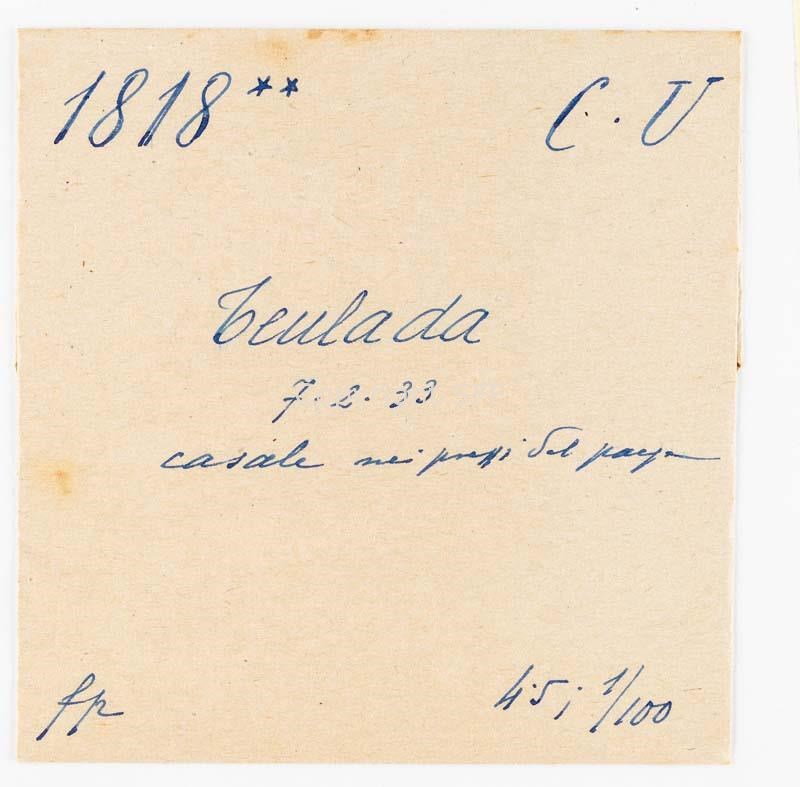 1818** C. U
Teulada
7. 2. 33
casale nei pressi del paese
fp
4.5; 1/100